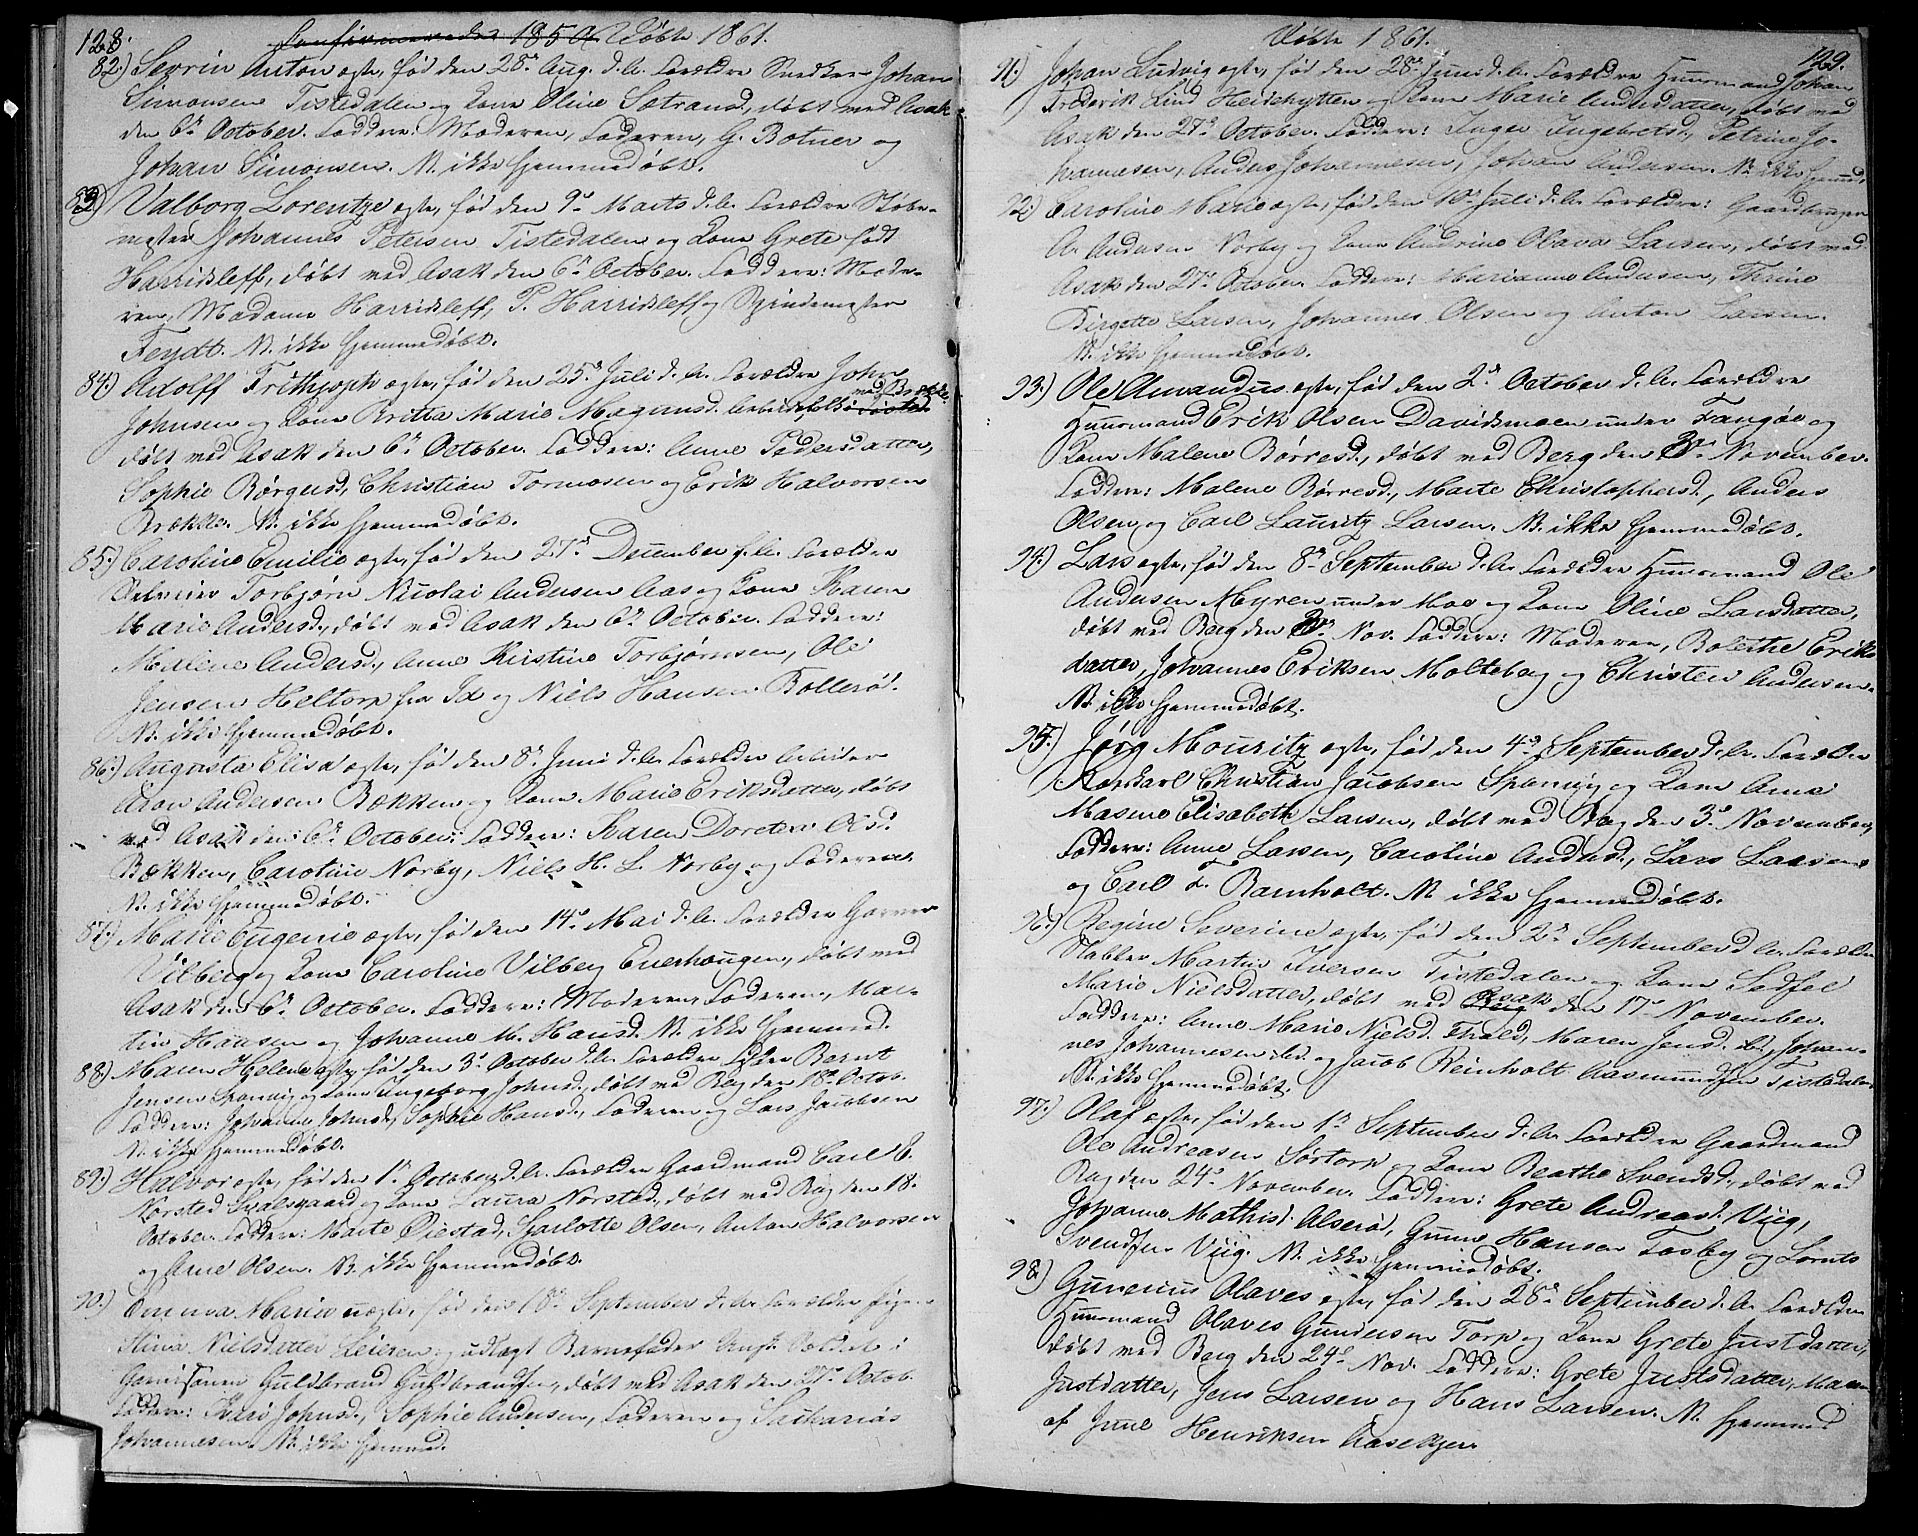 128.
Confirmerede 1850 Døbte 1861.
82.) Sevrin Anton ægte, fød den 28de Aug. d. A. Forældre Snedker Johan
Simonsen Tistedalen og Kone Oline Sætransd, døbt ved Asak
den 6te October. Faddere: Moderen, Faderen, G. Botner og
Johan Simonsen. N. ikke hjemmedøbt.
83) Valborg Lorentze ægte, fød den 9de Marts d. A. Forældre Støbe-
mester Johannes Petersen Tistedalen og Kone Grete født
Harridsleff, døbt ved Asak den 6te October. Faddere: Mode-
ren, Madame Harridsleff, P. Harridsleff og Spindemester
Feydt. N. ikke hjemmedøbt.
84) Adolff Frithjoph ægte, fød den 25de Juli d. A. Forældre John
Johnsen og Kone Britta Marie Magnusd. Arbeidsfolk ved Brække
døbt ved Asak den 6te October. Faddere: Anne Pedersdatter,
Sophie Børgersd, Christian Tormosen og Erik Halvorsen
Brække. N. ikke hjemmedøbt.
85.) Caroline Emilie ægte, fød den 27de December f. A. Forældre
Torbjørn Nicolai Andersen Aas og Kone Karen
Marie Andersd, døbt ved Asak den 6te October. Faddere:
Malene Andersd, Anne Kirstine Torbjørnsen, Ole
Jensen Heltorp fra Id og Niels Hansen Bollerød.
N. ikke hjemmedøbt.
86.) Augusta Elisa ægte, fød den 8de Juni d. A. Forældre Arbeider
Aron Andersen Bækken og Kone Marie Eriksdatter, døbt
ved Asak den 6te October. Faddere: Karen Doretea Olsd.
Bækken, Caroline Norby, Niels H. L. Norby og Faderen.
N. ikke hjemmedøbt.
87.) Marie Eugenie ægte, fød den 14de Mai d. A. Forældre Garver
Vilberg og Kone Caroline Vilberg Enerhaugen, døbt ved
Asak den 6te October. Faddere: Moderen, Faderen, Mar-
tin Hansen og Johanne M. Hansd. N. ikke hjemmed.
88.) Maren Helene ægte, fød den 3de October d. A. Forældre
Jensen Sponvig og Kone Ingeborg Johnsd, døbt ved Berg den 18de Octob.
Faddere: Johanne Johnsd, Sophie Hansd, Faderen og Lars Jacobsen
N. ikke hjemmedøbt.
89.) Halvor ægte, fød den 1de October d. A. Forældre Gaardmand Carl E.
Norsted og Kone Laura Norsted, døbt ved Berg den 18.
October. Faddere: Marte Øiestad, Charlotte Olsen, Anton Halvorsen
og Arne Olsen. N. ikke hjemmedøbt.
90.) Emma Marie uægte, fød den 18de September d. A. Forældre Pigen
Stina Nielsdatter Leieren og udlagt Barnefader Ungk. Soldat i
Guldbrand Guldbrandsen, døbt ved Asak den 27de Octob.
Faddere: Kari Johnsd, Sophie Andersen, Faderen og Sacharias
Johannesen N. ikke hjemmed.
Døbte 1861.
129.
91.) Johan Ludvig ægte, fød den 28de Juni d. A. Forældre Huusmand Johan
Frederik Lind Heidehytten og Kone Marie Andersdatter, døbt ved
Asak den 27de October. Faddere: Inger Ingebretsd, Petrine Jo-
hannesen, Anders Johannesen, Johan Andersen. N. ikke hjemmd.
92.) Caroline Marie ægte, fød den 10de Juli d. A. Forældre: Gaardbruger
A. Andersen Norby og Kone Andrine Olava Larsen, døbt ved
Asak den 27de October. Faddere: Marianne Andersen, Thrine
Birgette Larsen, Johannes Olsen og Anton Larsen.
N. ikke hjemmedøbt.
93.) Ole Amandus ægte, fød den 2den October d. A. Forældre
Huusmand Erik Olsen Davidsmoen under Fangøe og
Kone Malene Børresd., døbt ved Berg den 3de November.
Faddere: Malene Børresd., Marte Christophersd., Anders
Olsen og Carl Lauritz Larsen. N. ikke hjemmedøbt.
94.) Lars ægte, fød den 8de September d. A. Forældre Huusmand Ole
Andersen Myren under Moe og Kone Oline Larsdatter,
døbt ved Berg den 3de Nov. Faddere: Moderen, Bolethe Eriks-
datter, Johannes Eriksen Molteberg og Christen Andersen.
N. ikke hjemmedøbt.
95.) Jørg Mouritz ægte, fød den 4de September d. A. Forældre
Christian Jacobsen Sponvig og Kone Anne
Masene Elisabeth Larsen, døbt ved Berg den 3de November
Faddere: Anne Larsen, Caroline Andersd., Lars Larsen
og Carl F. Bamholt. N. ikke hjemmedøbt.
96.) Regine Severine ægte, fød den 2den September d. A. Forældre
Stabber Martin Iversen Tistedalen og Kone
Marie Nielsdatter, døbt ved Asak den 17de November.
Faddere: Anne Marie Nielsd. Maren Jensd. Johan-
nes Johannesen og Jacob Reinholt Aasmundsen Tistedalen
N. ikke hjemmedøbt.
97.) Olaf ægte, fød den 1de September d. A. Forældre Gaardmand
Ole Andreasen Sørtorp og Kone Beathe Svendsd., døbt ved
Berg den 24de November. Faddere: Grete Andreasd. Viig,
Johanne Mathisd. Alserød, Gunne Hansen Torsby og Lornts
Svendsen Viig. N. ikke hjemmedøbt.
98.) Gunerius Olaves ægte, fød den 28de September d. A. Forældre
Huusmand Olaves Gundersen Torp og Kone Grete Justdatter,
døbt ved Berg den 24de Nov. Faddere: Grete Justsdatter, Maren
Justdatter, Jens Larsen og Hans Larsen. N. hjemmed
af June Henriksen Aasekjer.